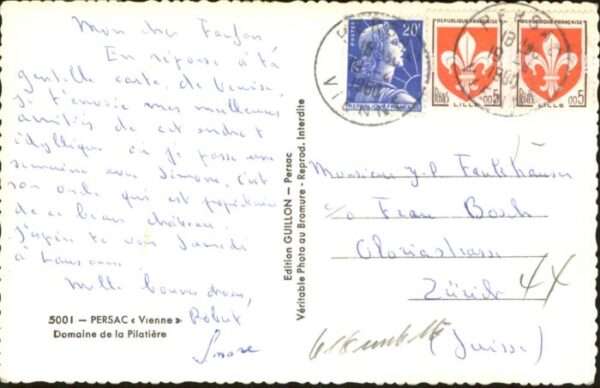 Mon cher Fanfan
En réponse à ta
gentille carte de Venise,
je t'envoie mes meilleures
amitiés de cet endroit
idyllique où je passe une
semaine avec Simone. C'est
son oncle qui est propriétaire
de ce beau château.
J'espère te voir Samedi
à Lausanne.
Mille bonnes choses,
5001 — PERSAC « Vienne »
Domaine de la Pilatière
Edition GUILLON — Persac
Véritable Photo au Bromure - Reprod. Interdite
POSTES 20F
REPUBLIQUE FRANÇAISE
LILLE 0,05
REPUBLIQUE FRANÇAISE
LILLE 0,05
VIENNE
Monsieur J-P
c/o Frau Bosch
Gloriastrasse
Zürich 44
(Suisse)